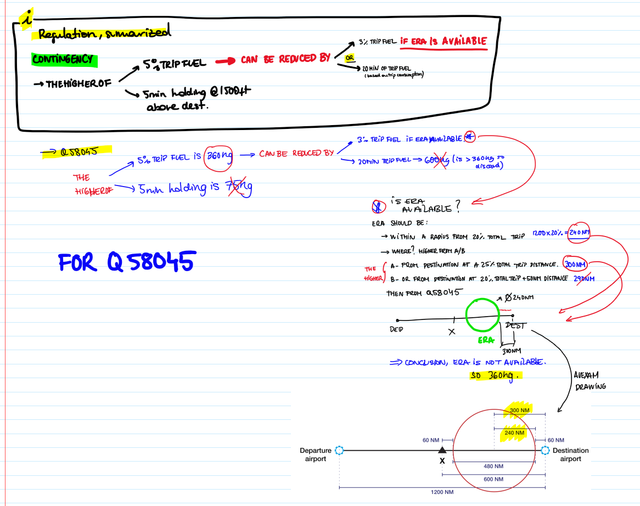 i
Regulation, summarized
CONTINGENCY
→ THE HIGHER OF
5% TRIP FUEL → CAN BE REDUCED BY
3% TRIP FUEL IF ERA IS AVAILABLE
OR
20 MIN OF TRIP FUEL
(based on trip consumption)
5min holding @1500ft
above dest.
→ Q58045
THE
HIGHER OF
5% TRIP FUEL IS 360kg → CAN BE REDUCED BY
3% TRIP FUEL IF ERA AVAILABLE
20min TRIP FUEL → 600kg (is > 360kg so
discard)
5min holding is 75kg
FOR Q58045
IS ERA
AVAILABLE?
ERA SHOULD BE:
→ WITHIN A RADIUS FROM 20% TOTAL TRIP 1200x20% = 240NM
→ WHERE? HIGHER FROM A/B
THE
HIGHER
A- FROM DESTINATION AT A 25% TOTAL TRIP DISTANCE. 300NM
B- OR FROM DESTINATION AT 20% TOTAL TRIP + 50NM DISTANCE 290NM
THEN FROM Q58045
240NM
DEP
X
DEST
ERA
300NM
⇒ CONCLUSION, ERA IS NOT AVAILABLE.
SO 360kg.
DRAWING
300 NM
240 NM
60 NM
60 NM
Departure
airport
X
Destination
airport
480 NM
600 NM
1200 NM